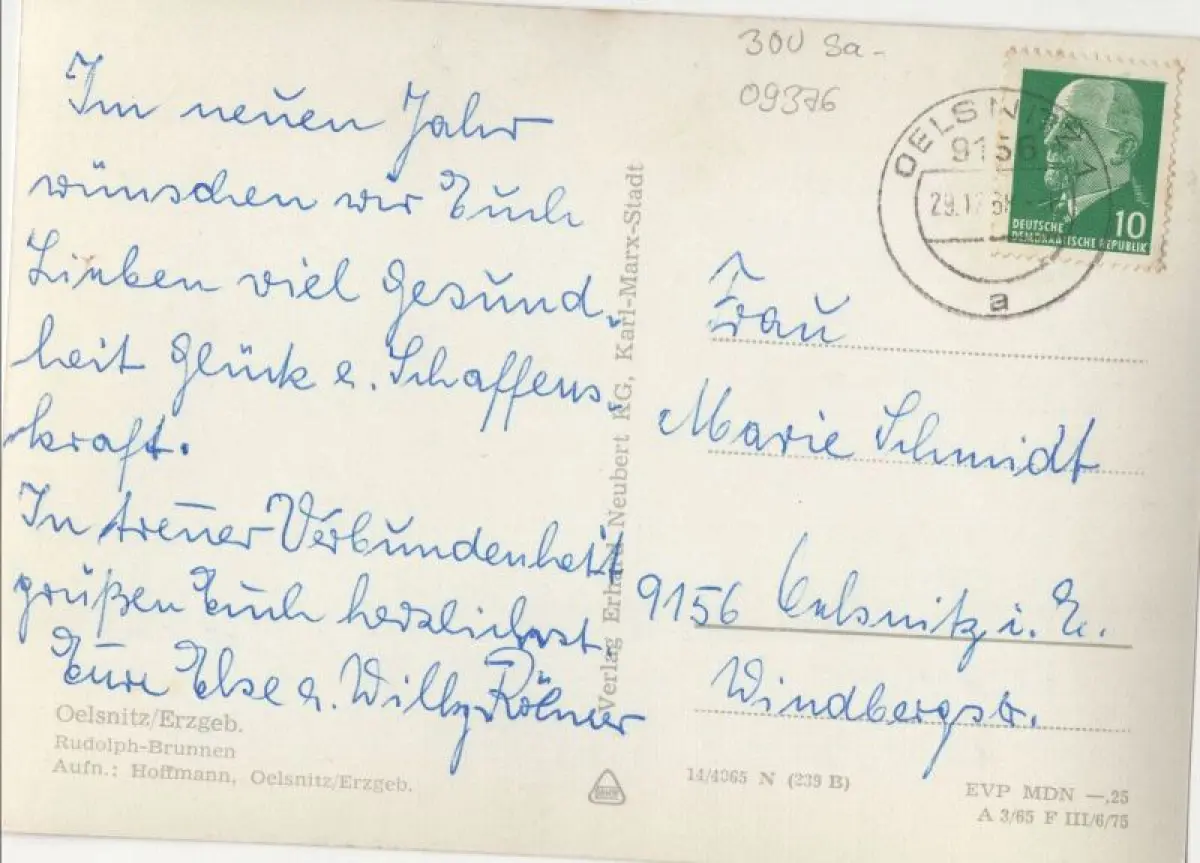 Im neuen Jahr
wünschen wir Euch
Lieben viel Gesund-
heit Glück u. Schaffens-
kraft.
In treuer Verbundenheit
grüßen Euch herzlichst
Eure Else u. Willy
Oelsnitz/Erzgeb.
Rudolph-Brunnen
Aufn.: Hoffmann, Oelsnitz/Erzgeb.
Verlag Erhard Neubert KG, Karl-Marx-Stadt
300 Sa-
09376
OELSNITZ
9156
29.12.
a
DEUTSCHE
DEMOKRATISCHE REPUBLIK
10
Frau
Marie Schmidt
9156 Oelsnitz i. E.
Windbergstr.
14/4065 N (239 B)
EVP MDN —,25
A 3/65 F III/6/75